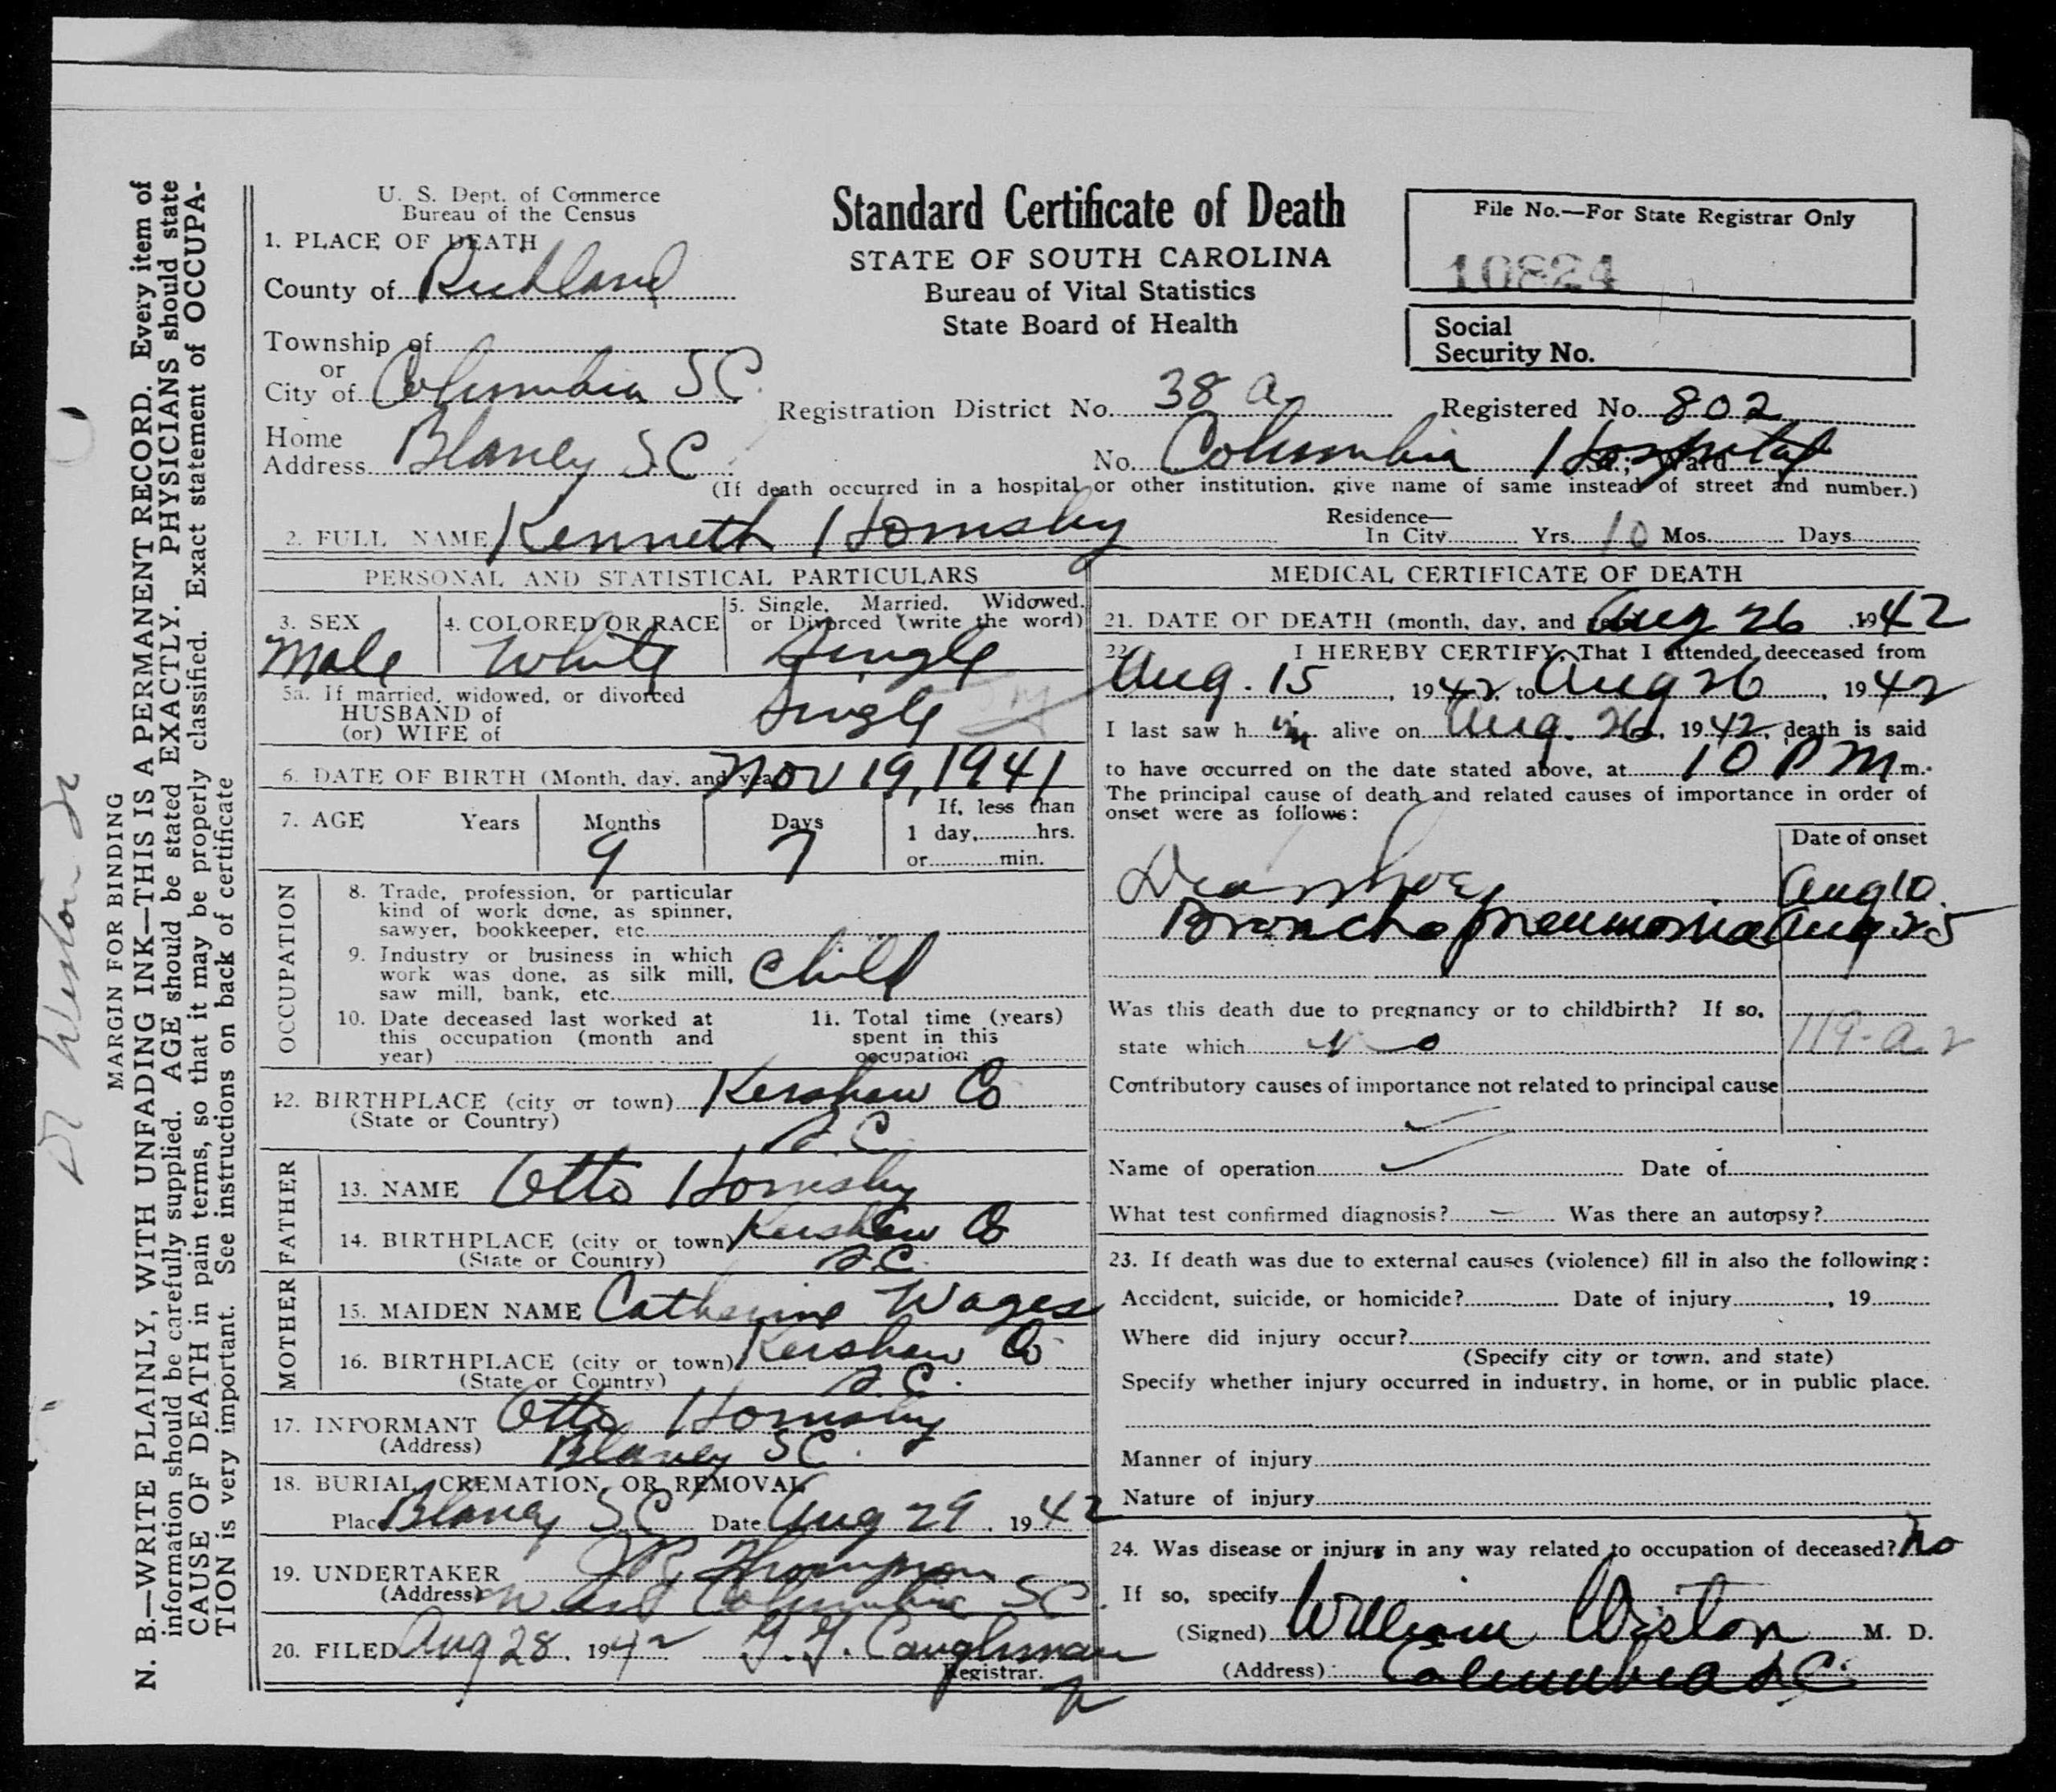 U. S. Dept. of Commerce
Bureau of the Census
Standard Certificate of Death
STATE OF SOUTH CAROLINA
Bureau of Vital Statistics
State Board of Health
File No.—For State Registrar Only
10824
Social
Security No.
1. PLACE OF DEATH
County of Richland
Township of
or
City of Columbia SC
Registration District No. 38 a Registered No. 802
Home
Address Blaney SC
No. Columbia Hospital St.; Ward
(If death occurred in a hospital or other institution. give name of same instead of street and number.)
2. FULL NAME Kenneth Hornsby
Residence—
In City Yrs. 10 Mos. Days
PERSONAL AND STATISTICAL PARTICULARS
3. SEX
Male
4. COLORED OR RACE
White
5. Single, Married, Widowed,
or Divorced (write the word)
Single
5a. If married, widowed, or divorced
HUSBAND of
(or) WIFE of
Single
6. DATE OF BIRTH (Month, day, and year) Nov 19, 1941
7. AGE Years Months Days If, less than
1 day, hrs.
or min.
9 7
OCCUPATION
8. Trade, profession, or particular
kind of work done, as spinner,
sawyer, bookkeeper, etc.
9. Industry or business in which
work was done, as silk mill,
saw mill, bank, etc. Child
10. Date deceased last worked at
this occupation (month and
year)
11. Total time (years)
spent in this
occupation
12. BIRTHPLACE (city or town) Kershaw Co
(State or Country) S.C.
FATHER
13. NAME Otto Hornsby
14. BIRTHPLACE (city or town) Kershaw Co
(State or Country) S.C.
MOTHER
15. MAIDEN NAME Catherine Wages
16. BIRTHPLACE (city or town) Kershaw Co
(State or Country) S.C.
17. INFORMANT Otto Hornsby
(Address) Blaney SC
18. BURIAL, CREMATION, OR REMOVAL
Place Blaney SC Date Aug 29, 1942
19. UNDERTAKER J R Thompson
(Address) West Columbia SC.
20. FILED Aug 28, 1942 G. G. Caughman
Registrar.
MEDICAL CERTIFICATE OF DEATH
21. DATE OF DEATH (month, day, and year) Aug 26, 1942
22. I HEREBY CERTIFY, That I attended deeceased from
Aug. 15, 1942, to Aug 26, 1942
I last saw him alive on Aug. 26, 1942, death is said
to have occurred on the date stated above, at 10 PM m.
The principal cause of death and related causes of importance in order of
onset were as follows:
Date of onset
Diarrhoea Aug 10.
Bronchopneumonia Aug 25
Was this death due to pregnancy or to childbirth? If so,
state which no
119-a 2
Contributory causes of importance not related to principal cause
Name of operation Date of
What test confirmed diagnosis? — Was there an autopsy?
23. If death was due to external causes (violence) fill in also the following:
Accident, suicide, or homicide? Date of injury , 19
Where did injury occur?
(Specify city or town, and state)
Specify whether injury occurred in industry, in home, or in public place.
Manner of injury
Nature of injury
24. Was disease or injury in any way related to occupation of deceased? No
If so, specify
(Signed) William Weston M. D.
(Address) Columbia S.C.
MARGIN FOR BINDING
N. B.—WRITE PLAINLY, WITH UNFADING INK—THIS IS A PERMANENT RECORD. Every item of
information should be carefully supplied. AGE should be stated EXACTLY. PHYSICIANS should state
CAUSE OF DEATH in pain terms, so that it may be properly classified. Exact statement of OCCUPA-
TION is very important. See instructions on back of certificate
Dr Weston Jr